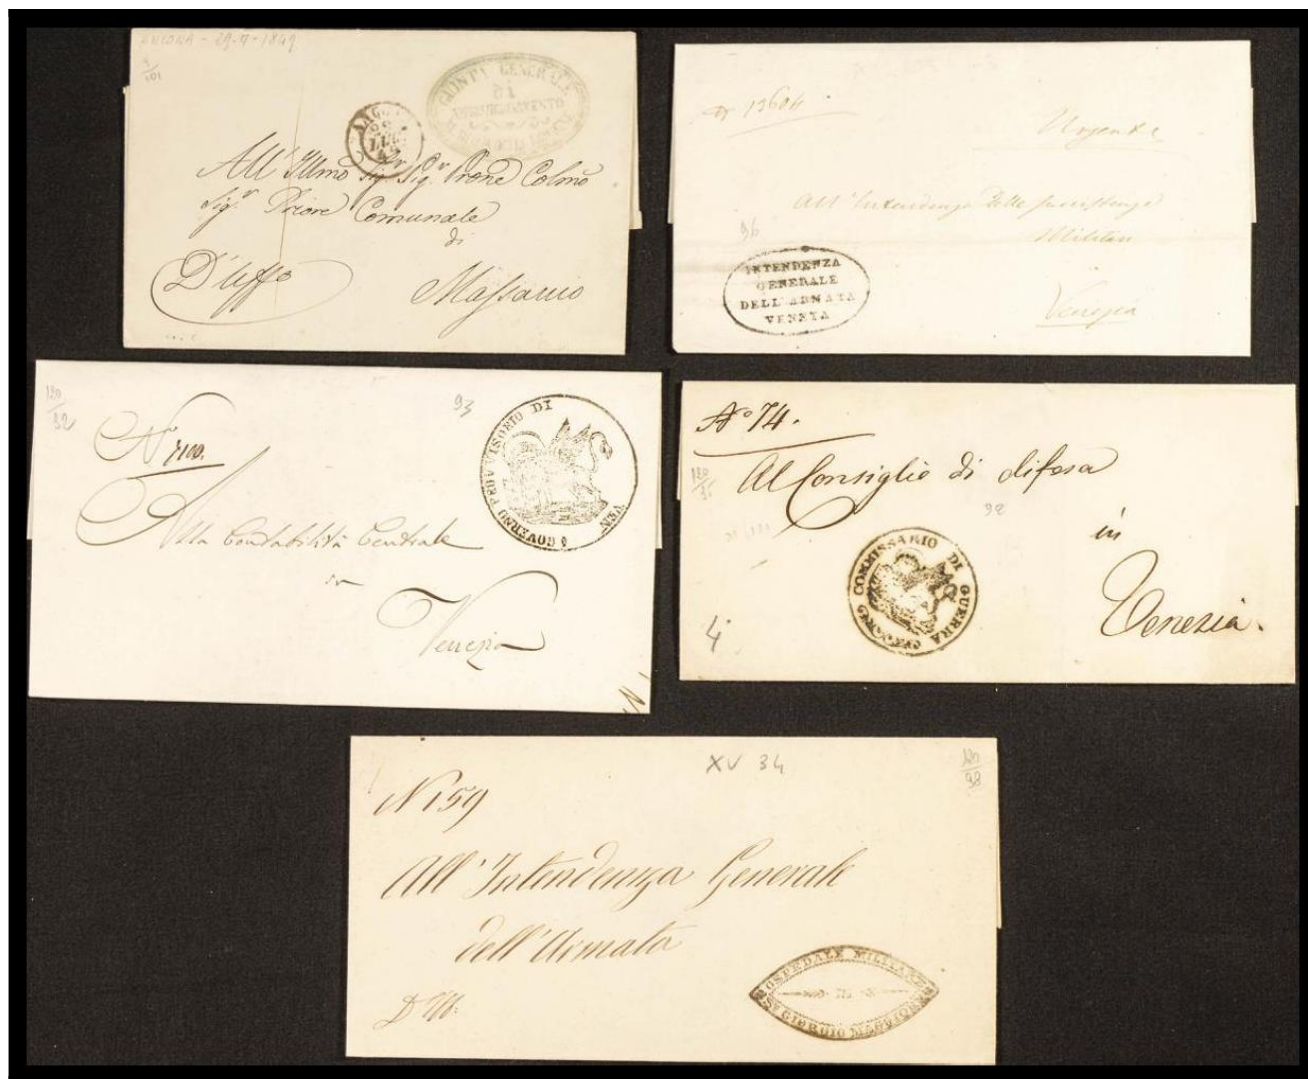 ANCONA - 29-7-1849
GIUNTA GENERALE
DI
LUG
All' Illmo Sig. Sig.r Prone Colmo
Sig.r Priore Comunale
di
D'Uffo
N 12604
Urgente
All' Intendenza delle sussistenze
Militari
Venezia
96
INTENDENZA
GENERALE
DELL'ARMATA
VENETA
120
32
93
N 7100.
GOVERNO PROVVISORIO DI VEN
Alla Contabilità Centrale
in
Venezia
N
No 74.
Al Consiglio di difesa
92
in
Venezia.
COMMISSARIO DI GUERRA
4
XV 34
120
98
N 159
All' Intendenza Generale
dell'Armata
D'Uff.
OSPEDALE MILITARE
GIORGIO MAGGIORE